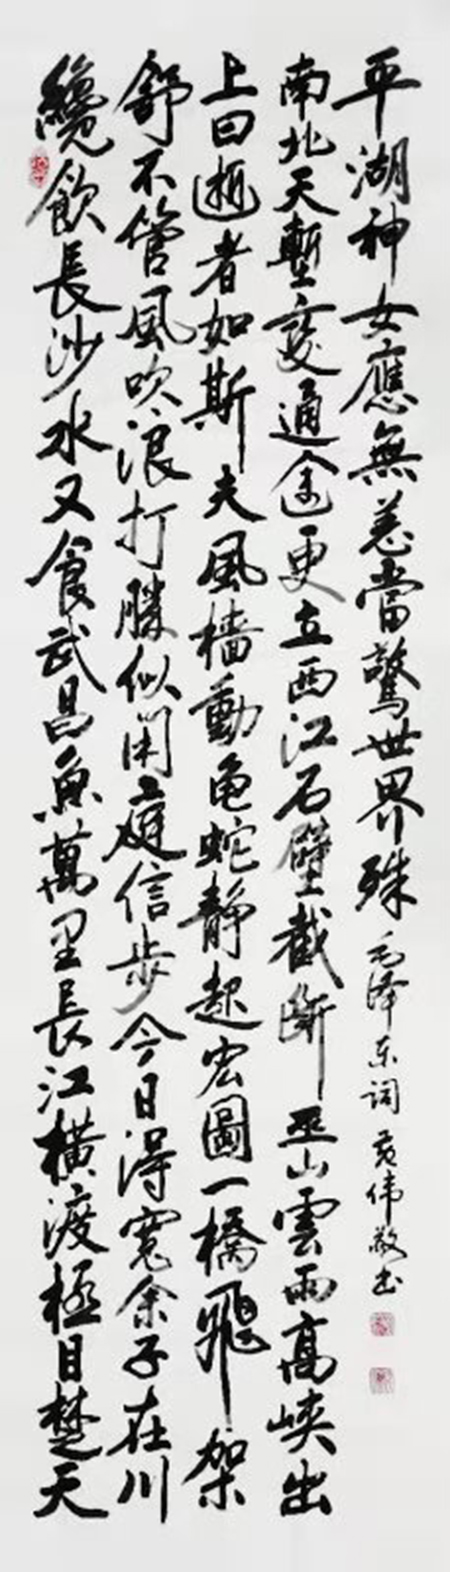 纔飲長沙水又食武昌魚萬里長江橫渡極目楚天
舒不管風吹浪打勝似闲庭信步今日得寬余子在川
上曰逝者如斯夫風檣動龟蛇静起宏圖一橋飛架
南北天塹變通途更立西江石壁截断巫山雲雨高峽出
平湖神女應無恙當驚世界殊 毛泽东词 黄伟敬书